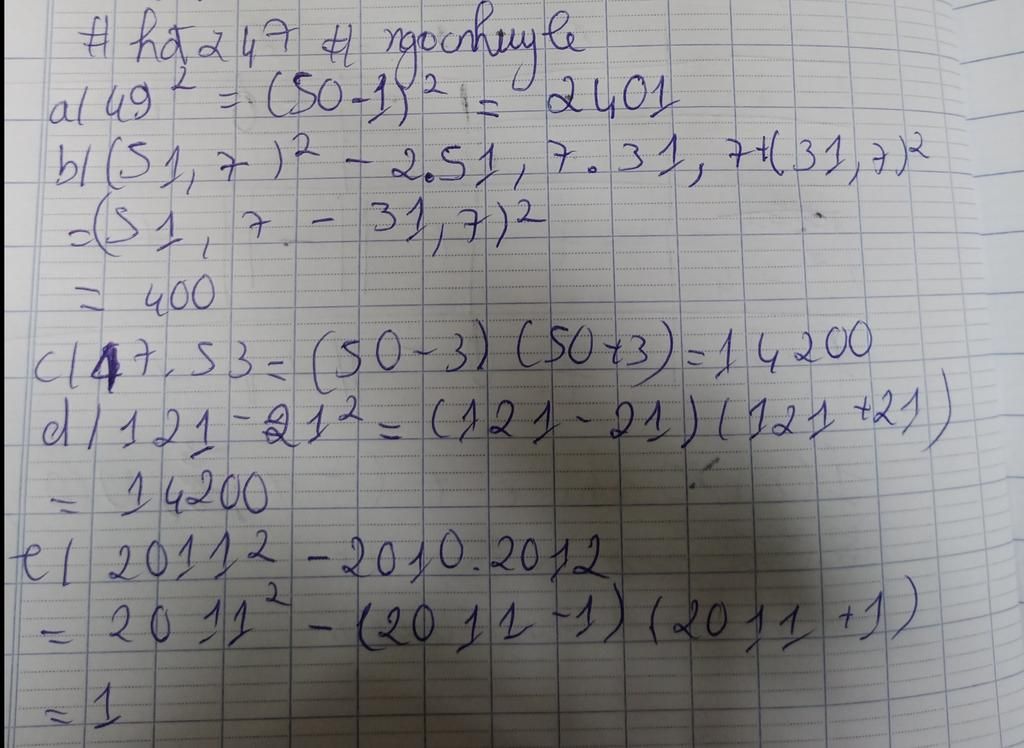 # hdt247 # ngocnhuyle
a/ 49² = (50-1)² = 2401
b/ (51,7)² - 2.51,7.31,7+(31,7)²
=(51,7 - 31,7)²
= 400
c/ 47.53 = (50-3) (50+3) = 14200
d/ 121 - 21² = (121 - 21) (121 +21)
= 14200
e/ 2011² - 2010.2012
= 2011² - (2011 -1) (2011 +1)
= 1